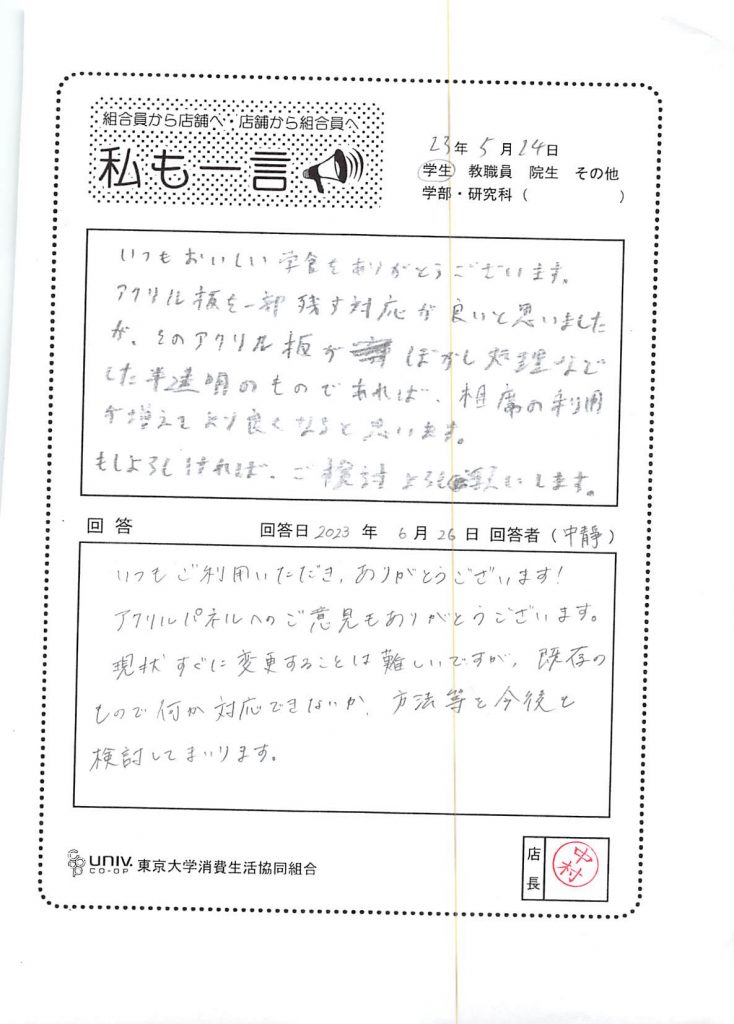 組合員から店舗へ・店舗から組合員へ
私も一言
23年5月24日
学生 教職員 院生 その他
学部・研究科（ ）
いつもおいしい学食をありがとうございます。
アクリル板を一部残す対応が良いと思いました
が、そのアクリル板が ぼかし処理など
した半透明のものであれば、相席の利用
が増えてより良くなると思います。
もしよろしければ、ご検討よろしくお願いします。
回答 回答日2023年 6月26日 回答者（中静）
いつもご利用いただき、ありがとうございます！
アクリルパネルへのご意見もありがとうございます。
現状すぐに変更することは難しいですが、既存の
もので何か対応できないか、方法等を今後も
検討してまいります。
UNIV. CO-OP 東京大学消費生活協同組合
店長
中村